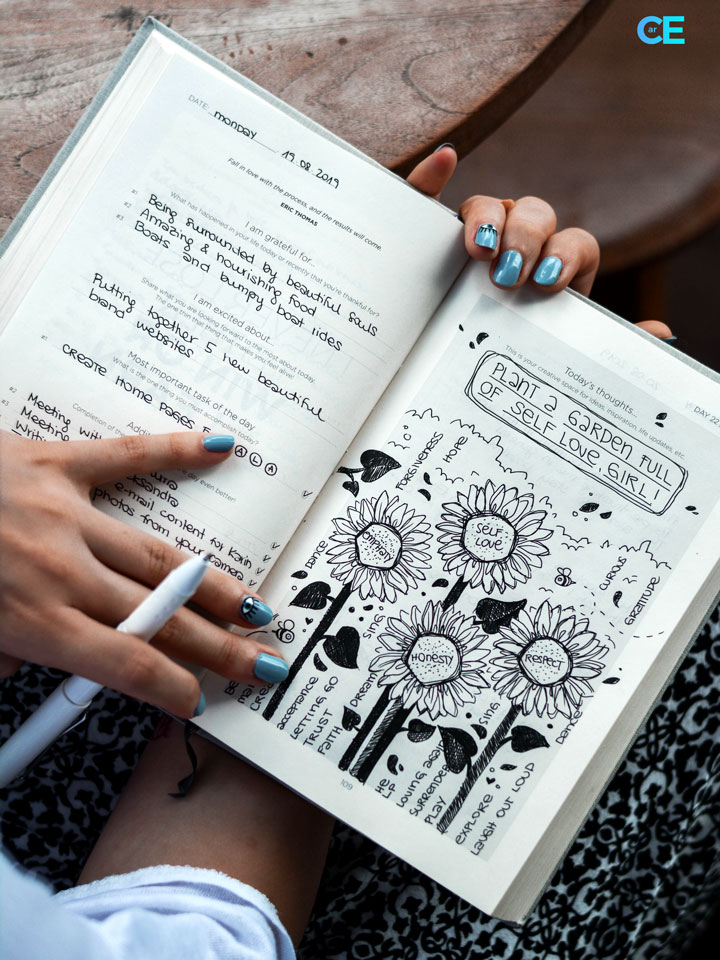 CarE
DATE: monday, 19.08.2019
Fall in love with the process, and the results will come.
ERIC THOMAS
I am grateful for...
What has happened in your life today or recently that you're thankful for?
#1 Being surrounded by beautiful souls
#2 Amazing & nourishing food
#3 Boats and bumpy boat rides
I am excited about...
Share what you are looking forward to the most about today.
The one thin that thing that makes you feel alive!
Putting together 5 new beautiful
brand websites
Most important task of the day
What is the one thing you must accomplish today?
#1 CREATE HOME PAGES
#2 Meeting with
#3 Meeting
e-mail content for Karin
photos from your camera
DAY 22
Today's thoughts...
This is your creative space for ideas, inspiration, life updates, etc.
PLANT A GARDEN FULL
OF SELF LOVE, GIRL!
FORGIVENESS
HOPE
SELF
LOVE
EMPATHY
HONESTY
RESPECT
CURIOUS
GRATITUDE
Dance
SING
Dream
Acceptance
LETTING GO
TRUST
FAITH
HELP
LOVING AGAIN
SURRENDER
PLAY
SING
Dance
EXPLORE
LAUGH OUT LOUD
109